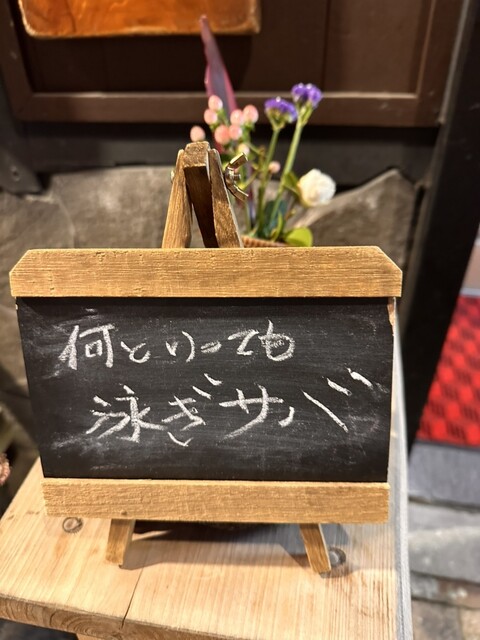 何といっても
泳ぎサバ